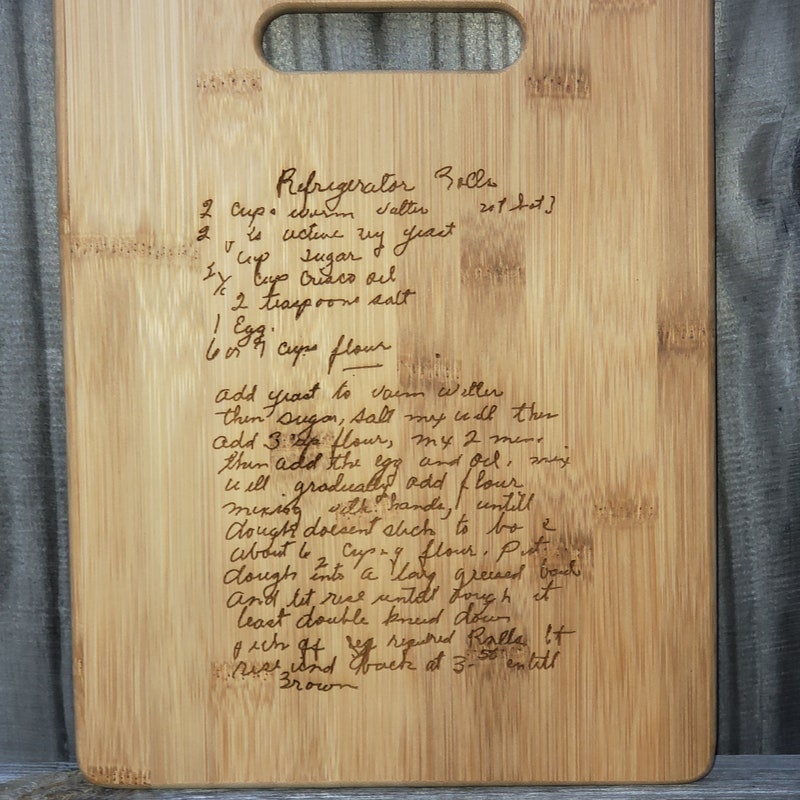 Refrigerator Rolls
2 cups warm watter not hot]
2 is active ry yeast
cup sugar
cup crisco oil
2 teaspoons salt
1 Egg.
6 or 7 cups flour
add yeast to warm watter
then sugar, salt mix well then
add 3 cup flour, mix 2 min.
then add the egg and oil, mix
well gradually add flour
mixing with hands, untill
dough doesent stick to bo
about 6 cups flour. Put
dough into a larg greased bowl
and let rise untill dough at
least double knead down
required Rolls let
rise and back at 350 untill
Brown